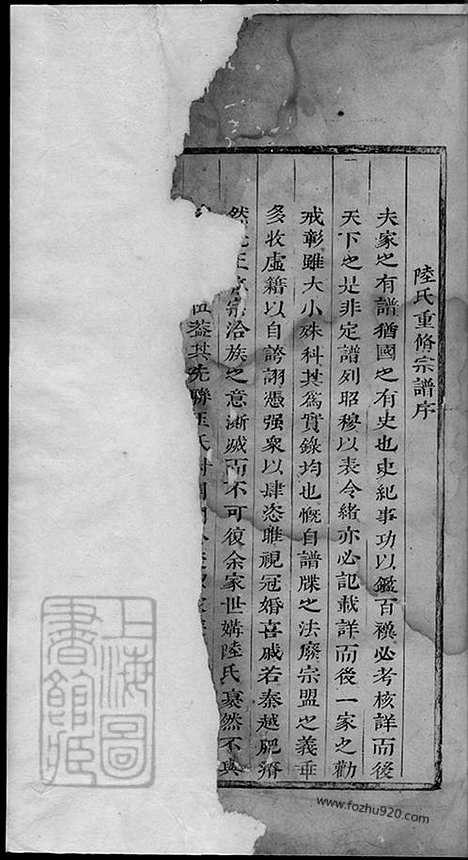 陸氏重脩宗譜序
夫家之有譜猶國之有史也史紀事功以鑑百襈必考核詳而後
天下之是非定譜列昭穆以表令緒亦必記載詳而後一家之勸
戒彰雖大小殊科其爲實錄均也慨自譜牒之法廢宗盟之義乖
多收虛籍以自誇詡憑强衆以肆恣睢視冠婚喜戚若秦越肥瘠
然先王敬宗洽族之意澌滅而不可復余家世媾陸氏裒然不與
伍葢其先聯
上海圖
書館藏
www.fozhu920.com